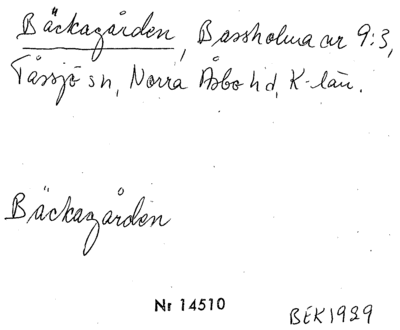 Bäckagården, Bassholma ar 9:3,
Tåssjö sn, Norra Åsbo hd, K-län.
Bäckagården
Nr 14510
BEK 1929